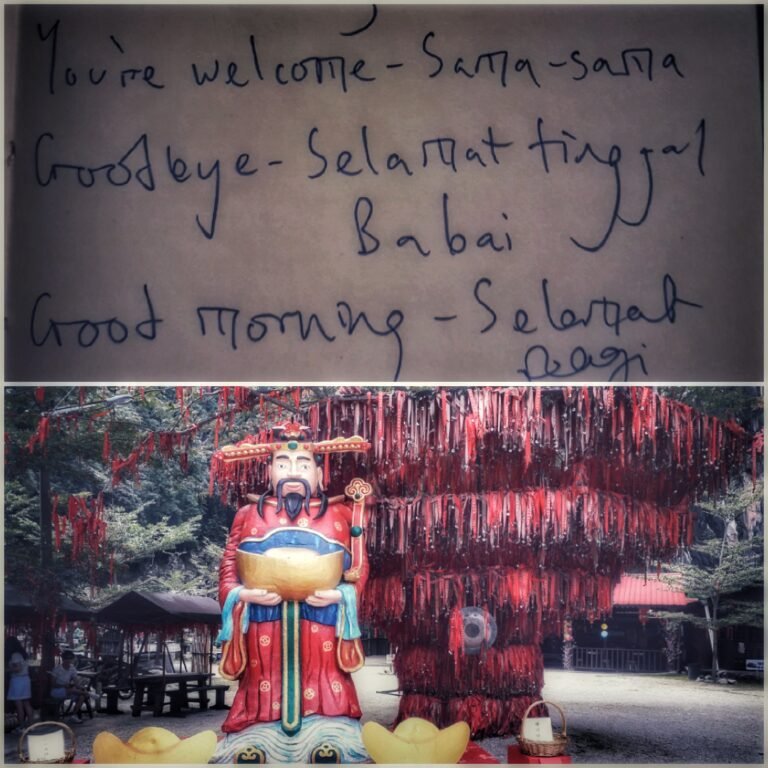 You're welcome - Sama-sama
Goodbye - Selamat tinggal
Babai
Good morning - Selamat
Pagi